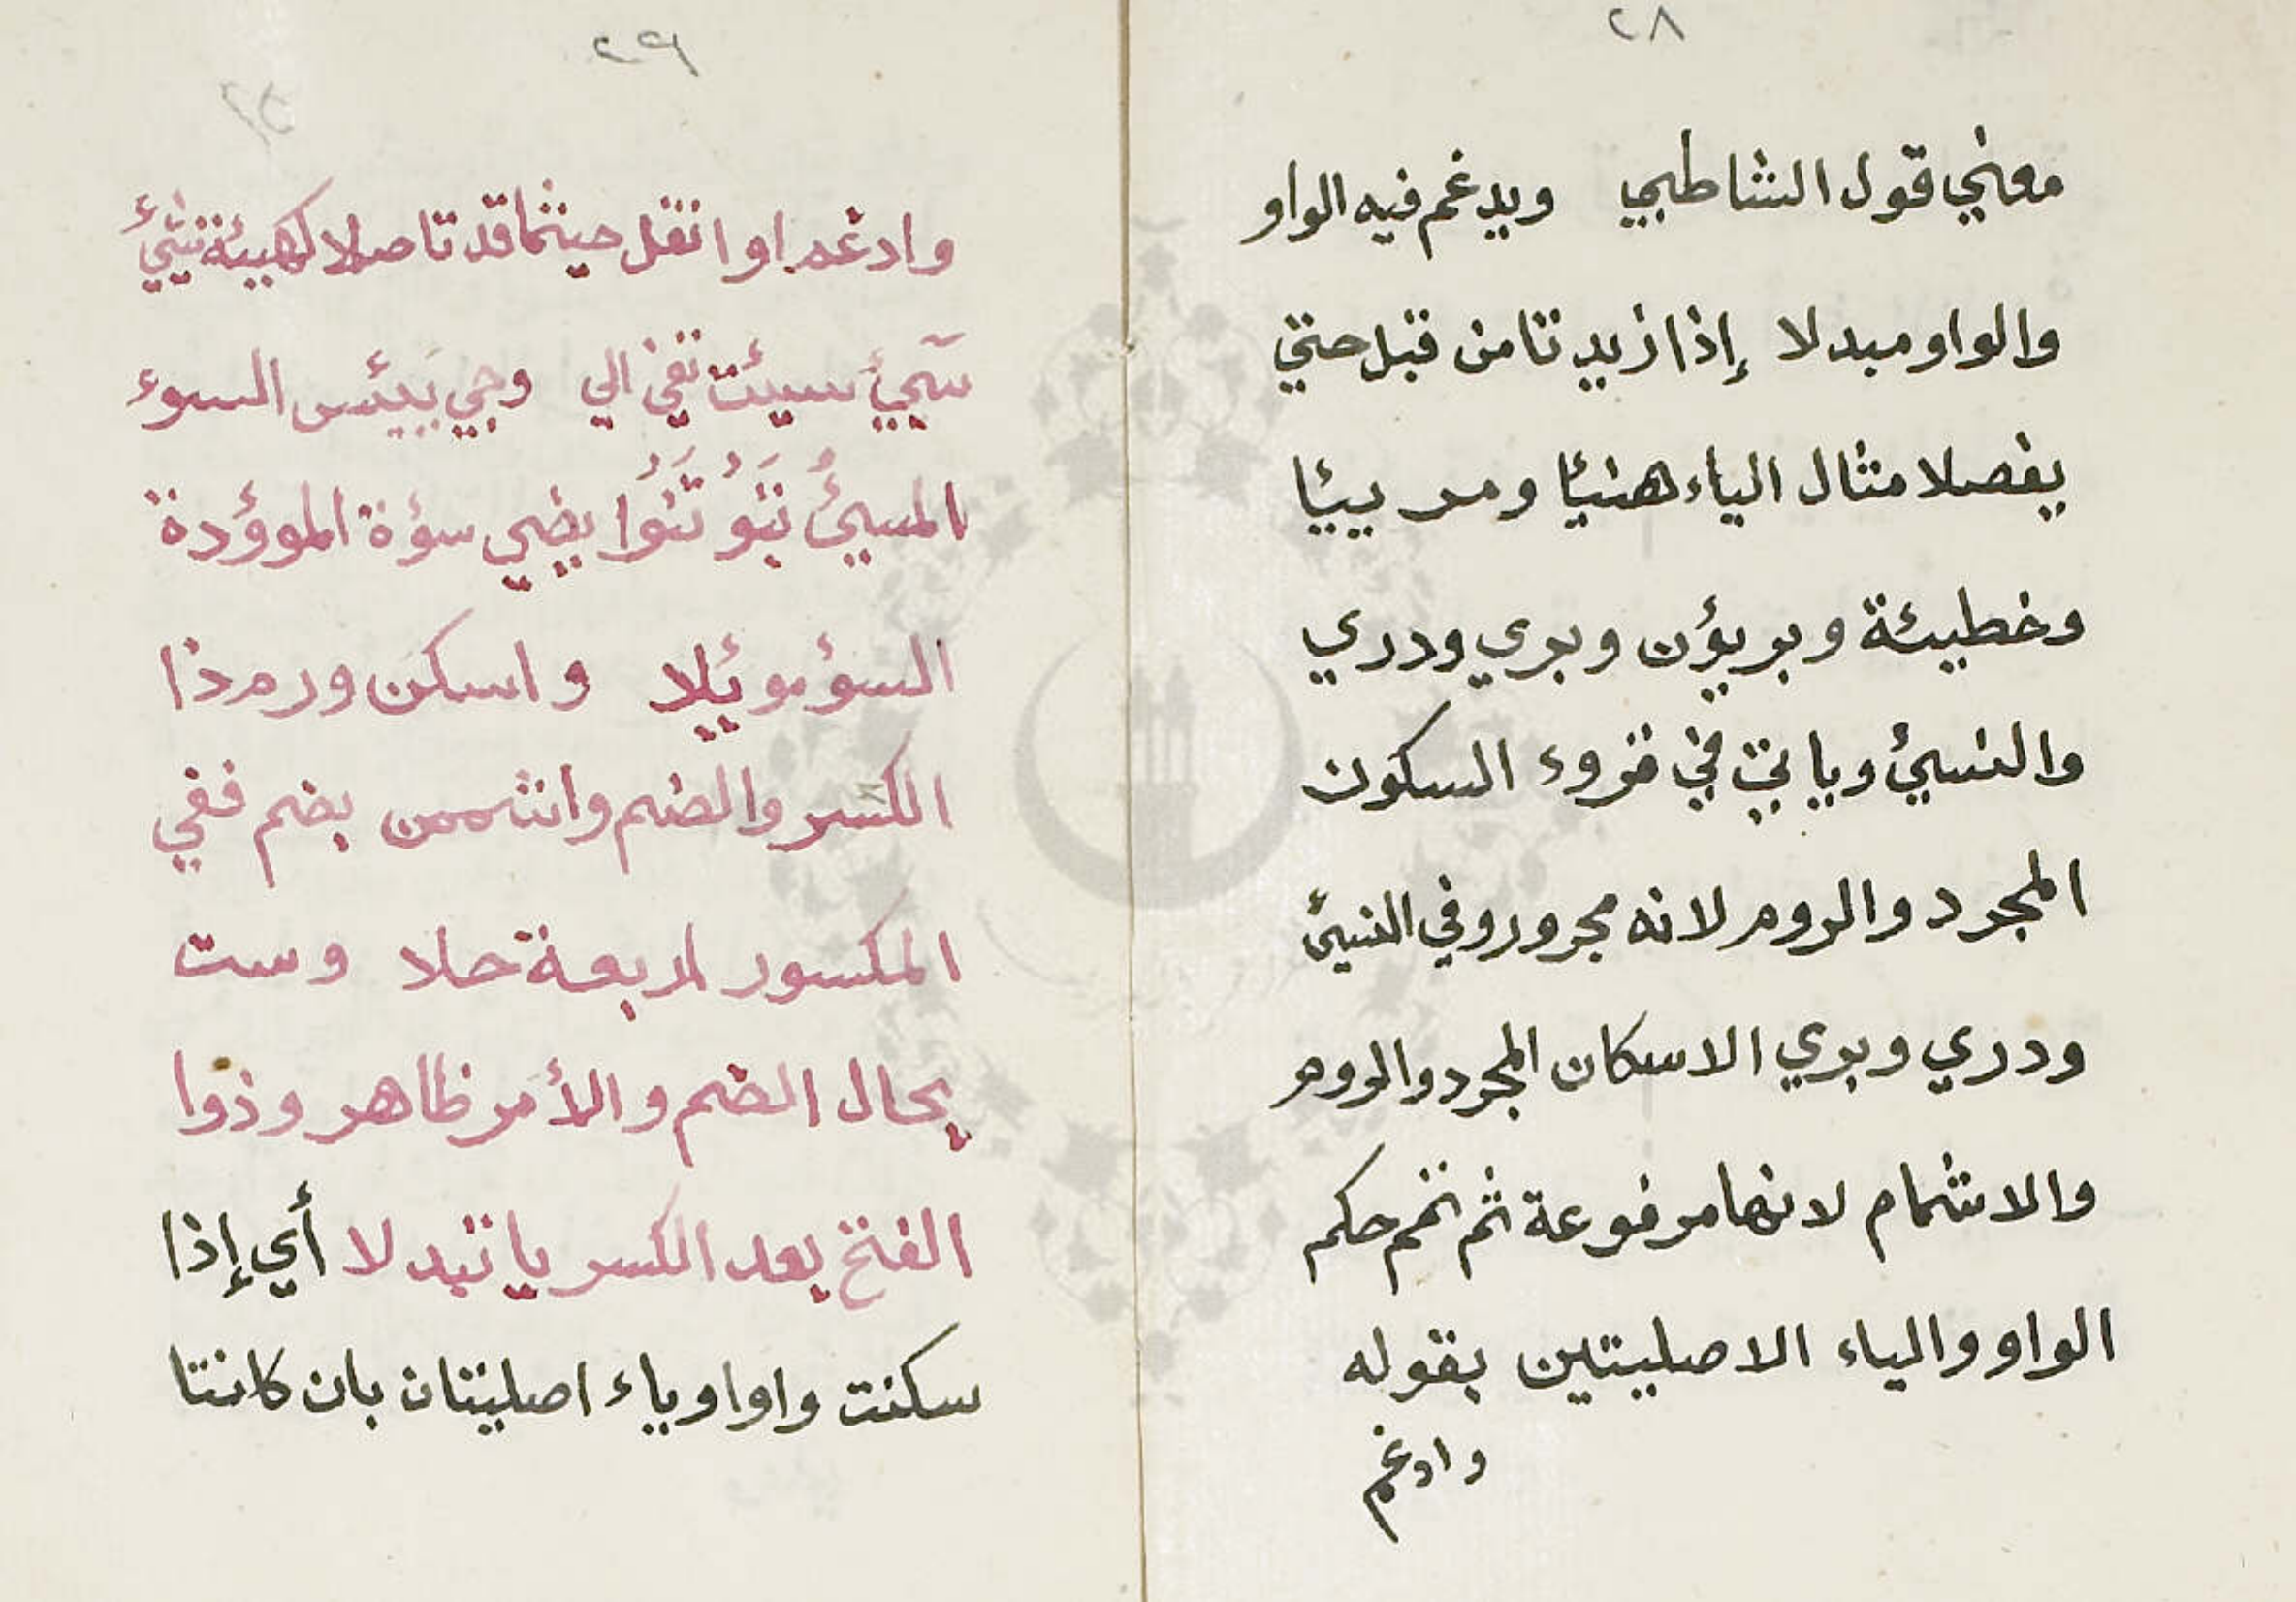 ٢٨
معني قول الشاطبي ويدغم فيه الواو
والواو مبدلا إذا زيدتا من قبل حتي
يفصلا مثال الياء هنيئا ومرييئا
وخطيئة وبريؤن وبري ودري
والنسيئ وياتي في قروء السكون
المجرد والروم لانه مجرور وفي النسيئ
ودري وبري الاسكان المجرد والروم
والاشمام لانها مرفوعة ثم تمم حكم
الواو والياء الاصليتين بقوله
وادغم
٢٩
وادغم او انقل حيثما قد تاصلا كهيئة شيئ
سيئ سيئت تفي الي وجي بييئس السوء
المسيئ تنوا يضي سؤة الموؤدة
السؤ موئلا واسكن ورم ذا
الكسر والضم واشممن بضم ففي
المكسور اربعة حلا وست
بحال الضم والأمر ظاهر وذوا
الفتح بعد الكسر يا تبدلا أي إذا
سكنت واو او ياء اصليتان بان كانتا